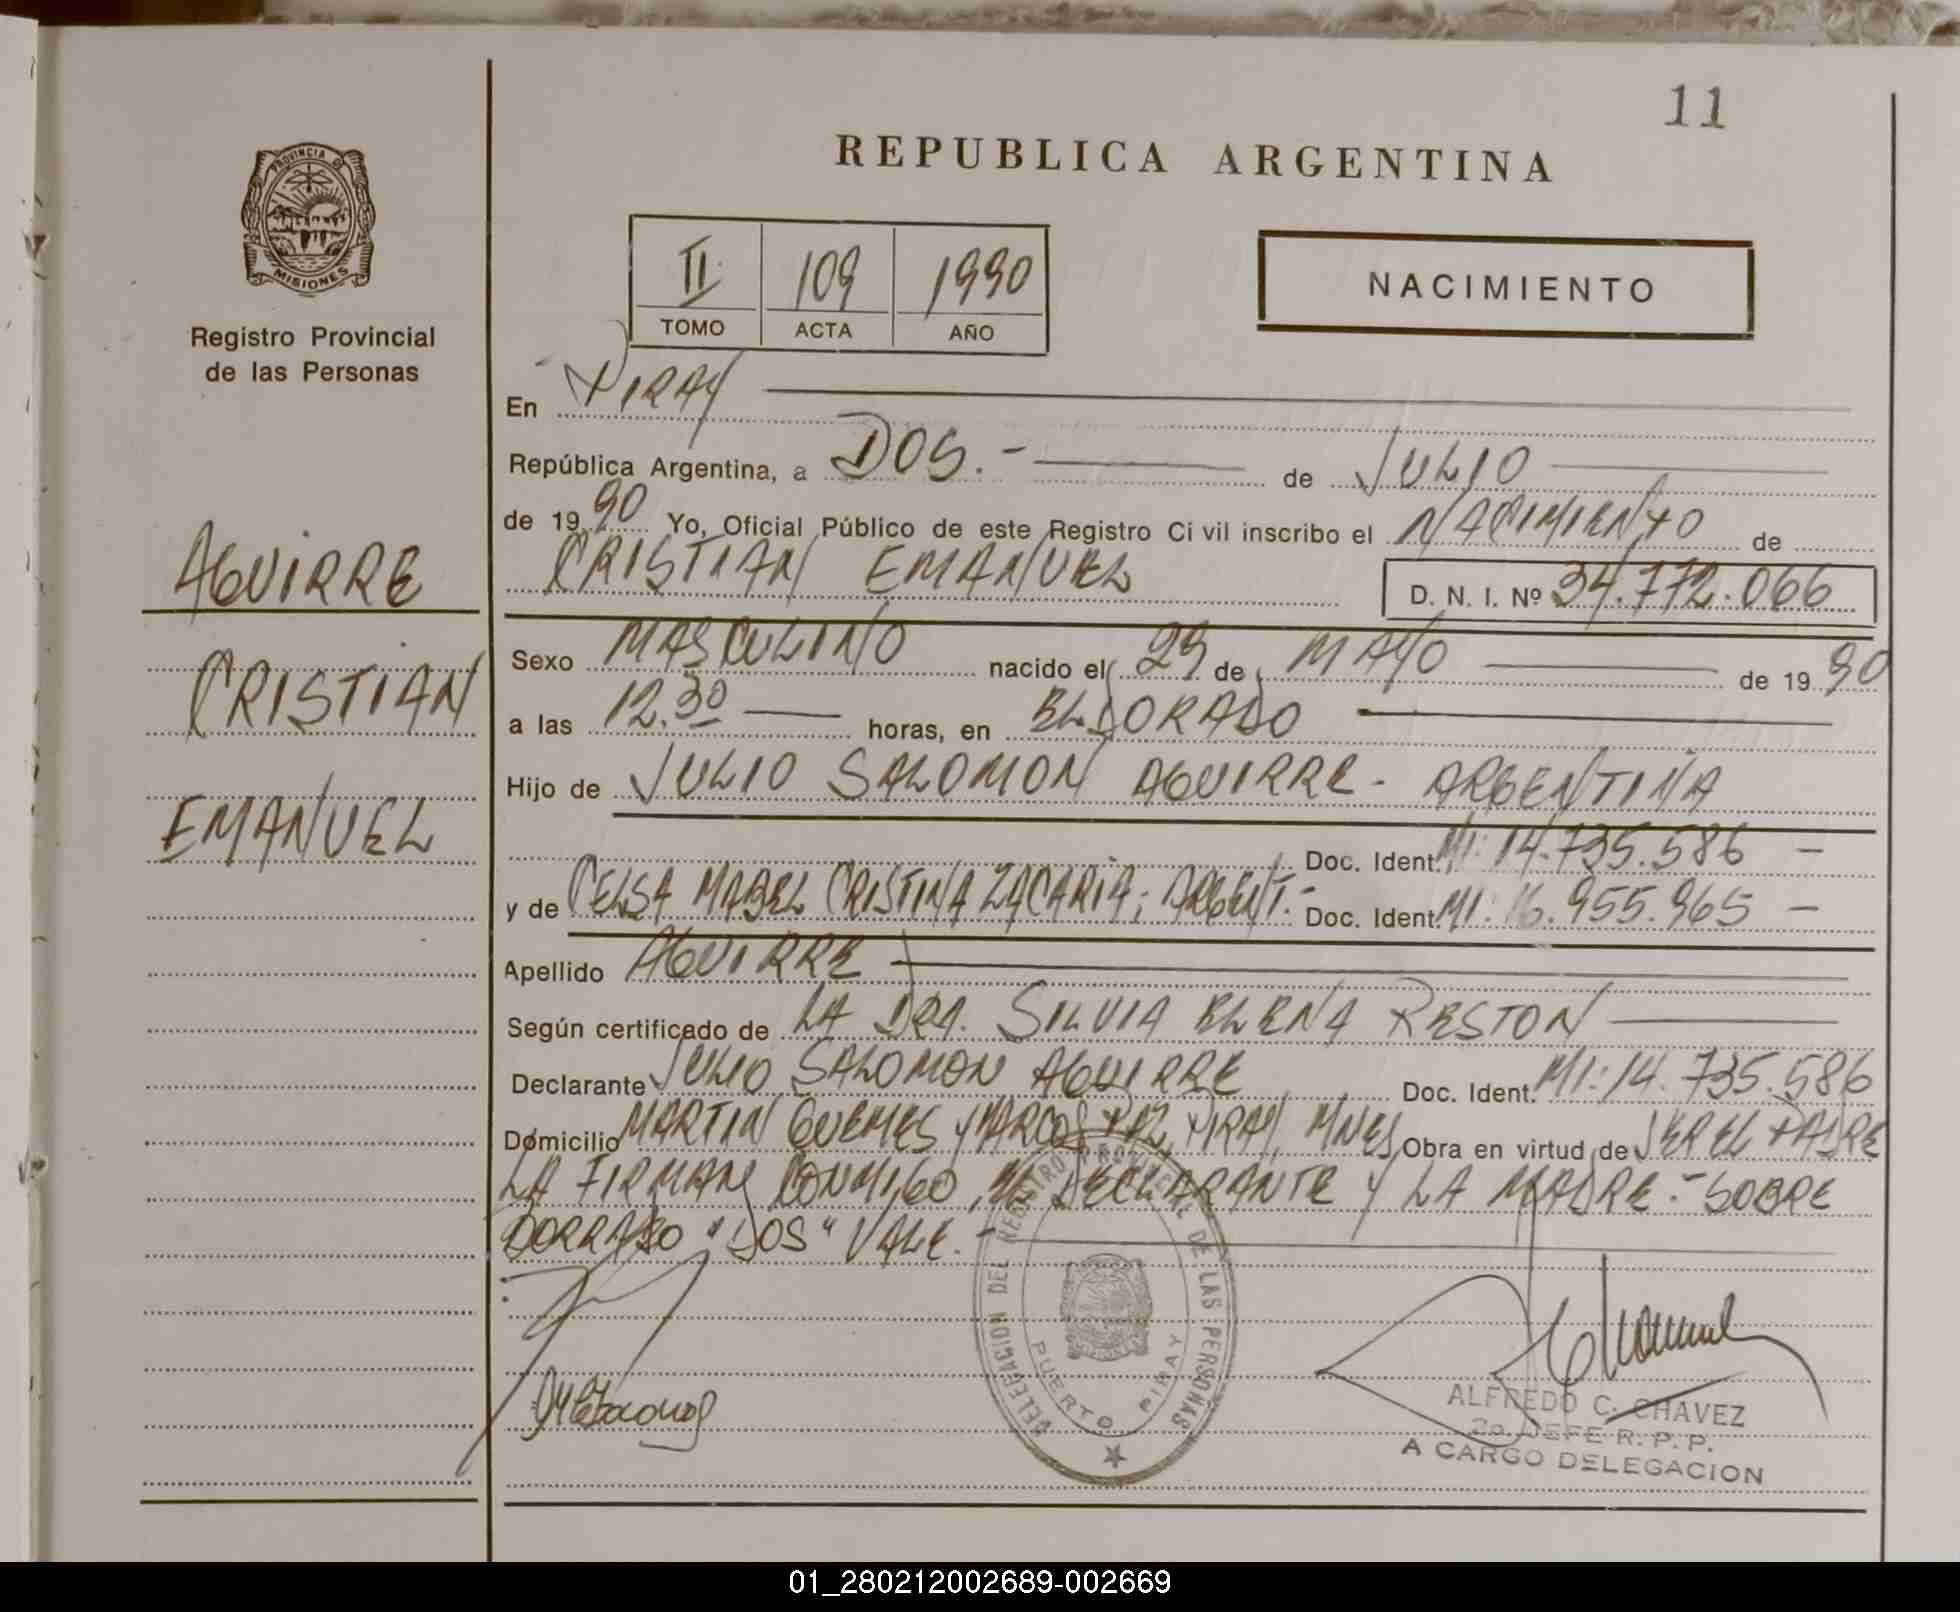 11
REPUBLICA ARGENTINA
PROVINCIA DE
MISIONES
Registro Provincial
de las Personas
II 109 1990
TOMO ACTA AÑO
NACIMIENTO
En PIRAY
República Argentina, a DOS.- de JULIO
de 1990 Yo, Oficial Público de este Registro Civil inscribo el NACIMIENTO de
CRISTIAN EMANUEL D. N. I. Nº 34.772.066
AGUIRRE
CRISTIAN
EMANUEL
Sexo MASCULINO nacido el 29 de MAYO de 1990
a las 12.30 horas, en ELDORADO
Hijo de JULIO SALOMON AGUIRRE - ARGENTINA
Doc. Ident. MI: 14.735.586 -
y de CELSA MABEL CRISTINA ZACARIA; ARGENT.- Doc. Ident. MI: 16.955.965 -
Apellido AGUIRRE
Según certificado de LA DRA. SILVIA ELENA RESTON
Declarante JULIO SALOMON AGUIRRE Doc. Ident. MI: 14.735.586
Domicilio MARTIN GUEMES Y MARCOS PAZ, PIRAY, MNES Obra en virtud de SER EL PADRE
LA FIRMAN CONMIGO EL DECLARANTE Y LA MADRE.- SOBRE
BORRADO "DOS" VALE.-
DELEGACION DEL REGISTRO PROVINCIAL DE LAS PERSONAS
PUERTO PIRAY
ALFREDO C. CHAVEZ
2o. JEFE R. P. P.
A CARGO DELEGACION
01_280212002689-002669